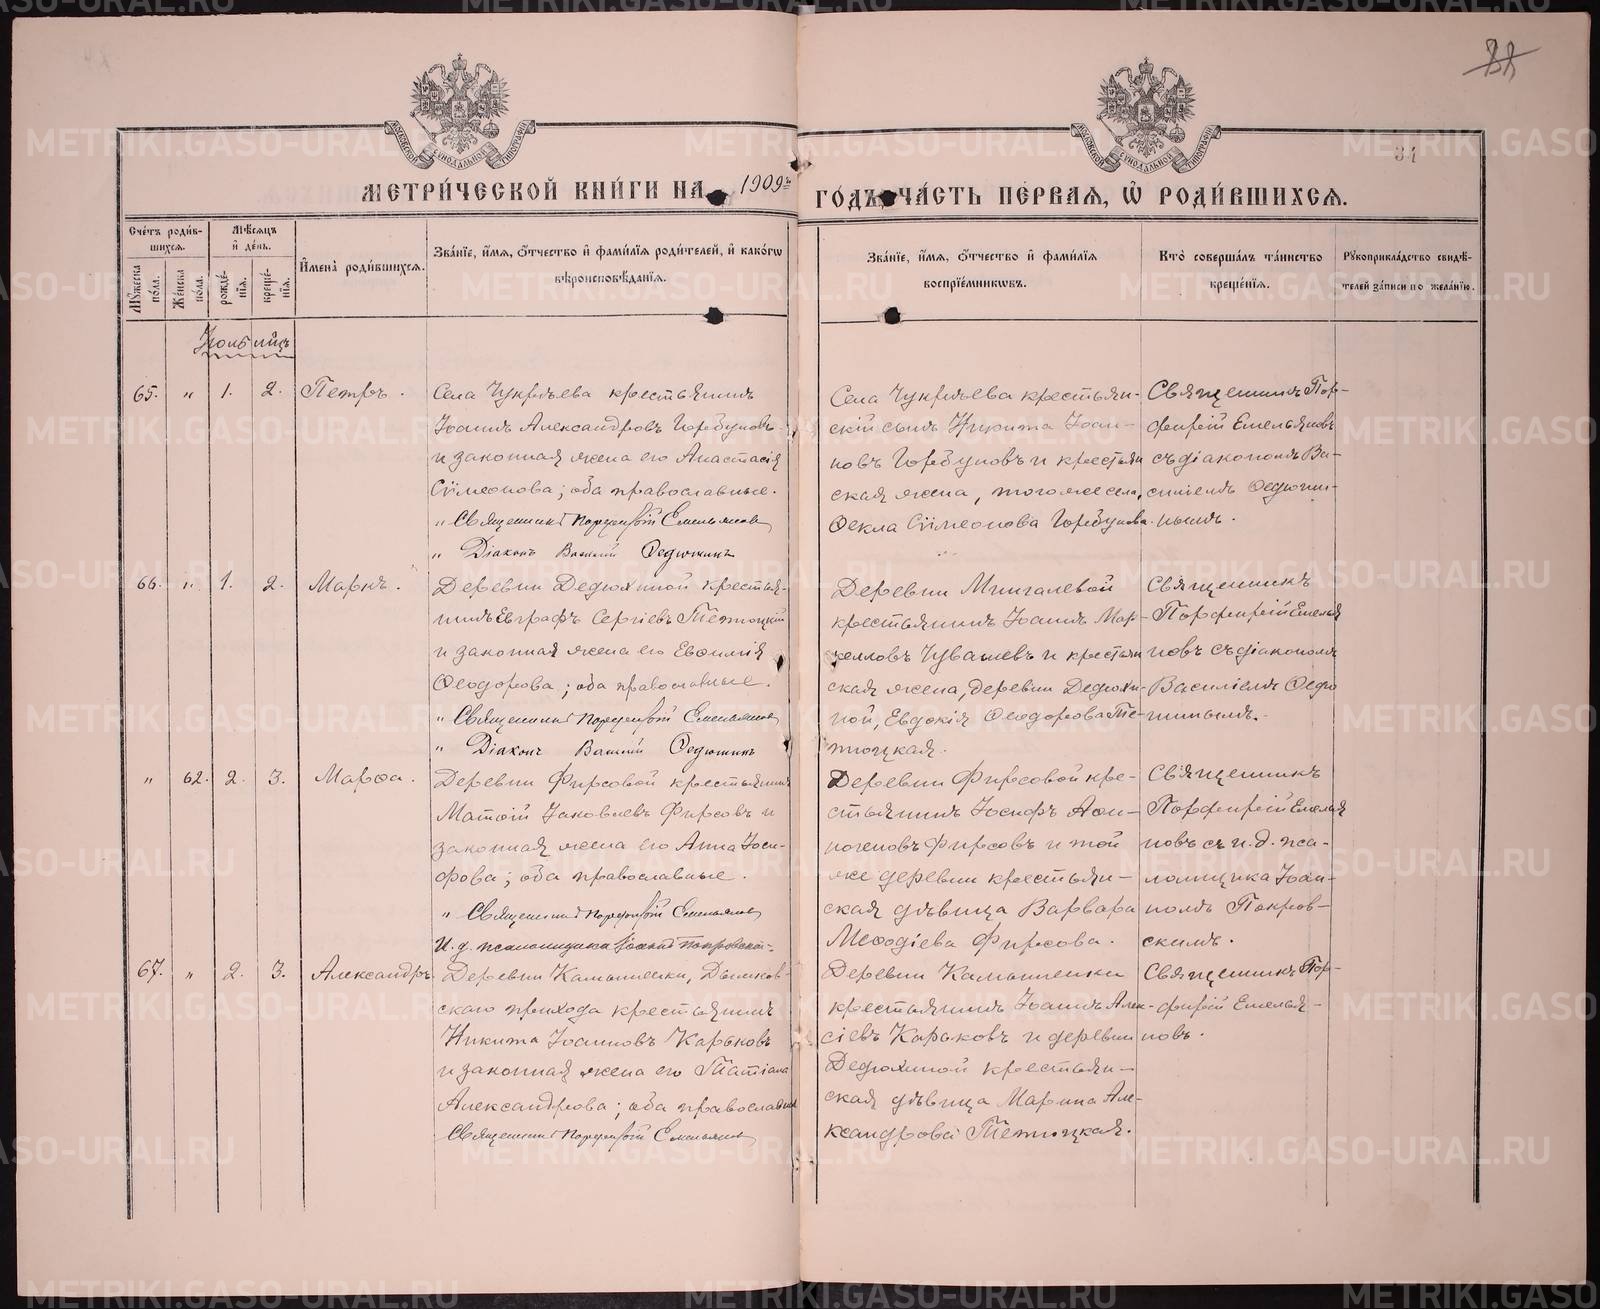 МЕТРИ́ЧЕСКОЙ КНИ́ГИ НА 1909й ГО́ДЪ, ЧА́СТЬ ПЕ́РВАЯ, Ѡ РОДИ́ВШИХСЯ.
31
Сче́тъ роди́в-
шихся.
Мѣ́сяцъ
и де́нь.
Му́жеска
по́ла.
Же́нска
по́ла.
рожде́-
нїя.
креще́-
нїя.
Имена̀ роди́вшихся.
Зва́нїе, и́мя, о́тчество и фами́лїя роди́телей, и како́гѡ
вѣроисповѣ́данїя.
Зва́нїе, и́мя, о́тчество и фами́лїя
воспрїе́мниковъ.
Кто̀ соверша́лъ та́инство
креще́нїя.
Рукоприкла́дство свидѣ́-
телей за́писи по жела́нїю.
65. " 1. 2. Петръ.
Села Чукрѣева крестьянинъ
Іоаннъ Александровъ Горбуновъ
и законная жена его Анастасія
Сѵмеонова; оба православные.
" Священникъ Порфирій Емельяновъ
" Діаконъ Василій Ѳедюшинъ
Села Чукрѣева крестьян-
скій сынъ Никита Іоан-
новъ Горбуновъ и крестьян
ская жена, того же села,
Ѳекла Сѵмеонова Горбунова.
Священникъ Пор-
фирій Емельяновъ
съ діакономъ Ва-
силіемъ Ѳедюши-
нымъ.
66. " 1. 2. Маркъ.
Деревни Дедюхиной крестья-
нинъ Евграфъ Сергіевъ
и законная жена его Евѳимія
Ѳеодорова; оба православные.
" Священникъ Порфирій Емельяновъ
" Діаконъ Василій Ѳедюшинъ
Деревни Мингалевой
крестьянинъ Іоаннъ Мар-
келловъ Чувашевъ и крестьян
ская жена, деревни Дедюхи-
ной, Евдокія Ѳеодорова
Священникъ
Порфирій Емелья
новъ съ діакономъ
Василіемъ Ѳедю
шинымъ.
" 62. 2. 3. Марѳа.
Деревни Фирсовой крестьянинъ
Матѳій Іаковлевъ Фирсовъ и
законная жена его Анна Іоси-
фова; оба православные.
" Священникъ Порфирій Емельяновъ
И. д. псаломщика Іоаннъ Покровскій.
Деревни Фирсовой кре-
стьянинъ Іосифъ Аѳи-
ногеновъ Фирсовъ и той
же деревни крестьян-
ская дѣвица Варвара
Меѳодіева Фирсова.
Священникъ
Порфирій Емелья
новъ съ и. д. пса-
ломщика Іоан-
номъ Покров-
скимъ.
67. " 2. 3. Александръ.
Деревни Камышенки, Дымков-
скаго прихода крестьянинъ
Никита Іоанновъ Карѣковъ
и законная жена его Татіана
Александрова; оба православные
Священникъ Порфирій Емельяновъ
Деревни Камышенки
крестьянинъ Іоаннъ Алек-
сіевъ Караковъ и деревни
Дедюхиной крестьян-
ская дѣвица Марина Але-
ксандрова
Священникъ Пор-
фирій Емелья-
новъ.
METRIKI.GASO-URAL.RU